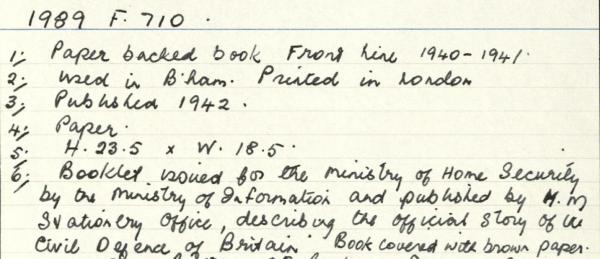 1989 F. 710.
1; Paper backed book Front Line 1940-1941.
2; used in B'ham. Printed in London
3; Published 1942.
4; Paper.
5; H. 23.5 x W. 18.5.
6; Booklet issued for the ministry of Home Security
by the Ministry of Information and published by H.M
Stationery Office, describing the official story of the
Civil Defence of Britain. Book covered with brown paper.